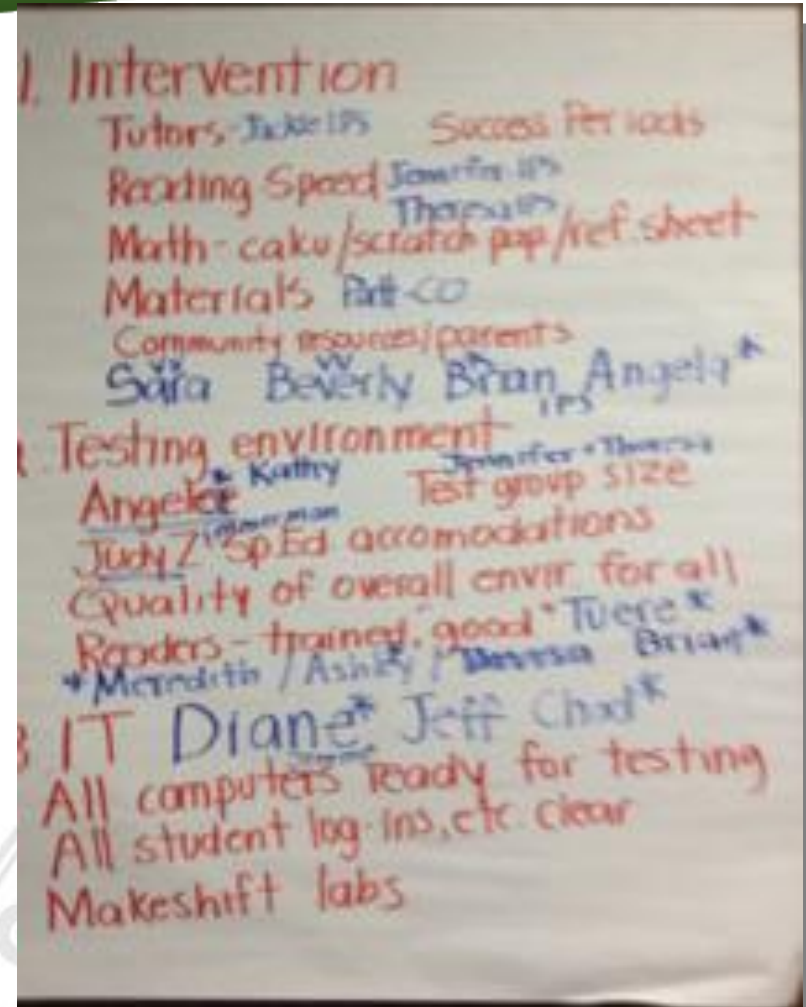 1. Intervention
Tutors-Jackie IPS Success Periods
Reading Speed Jennifer-IPS
Theresa IPS
Math-calcu/scratch pap/ref.sheet
Materials Patt-CO
Community resources/parents
Sara Beverly Brian Angela*
IPS
Testing environment
* Kathy Jennifer + Theresa
Angelee Test group size
Judy Zimmerman Sp.Ed accomodations
Quality of overall envir. for all
Readers-trained, "good" Tuere*
*Meredith / Ashley / Brian*
3 IT Diane* Jeff Chad*
All computers ready for testing
All student log-ins, etc clear
Makeshift labs